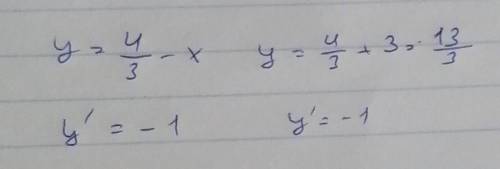 y = 4/3 - x    y = 4/3 + 3 = 13/3
y' = -1    y' = -1